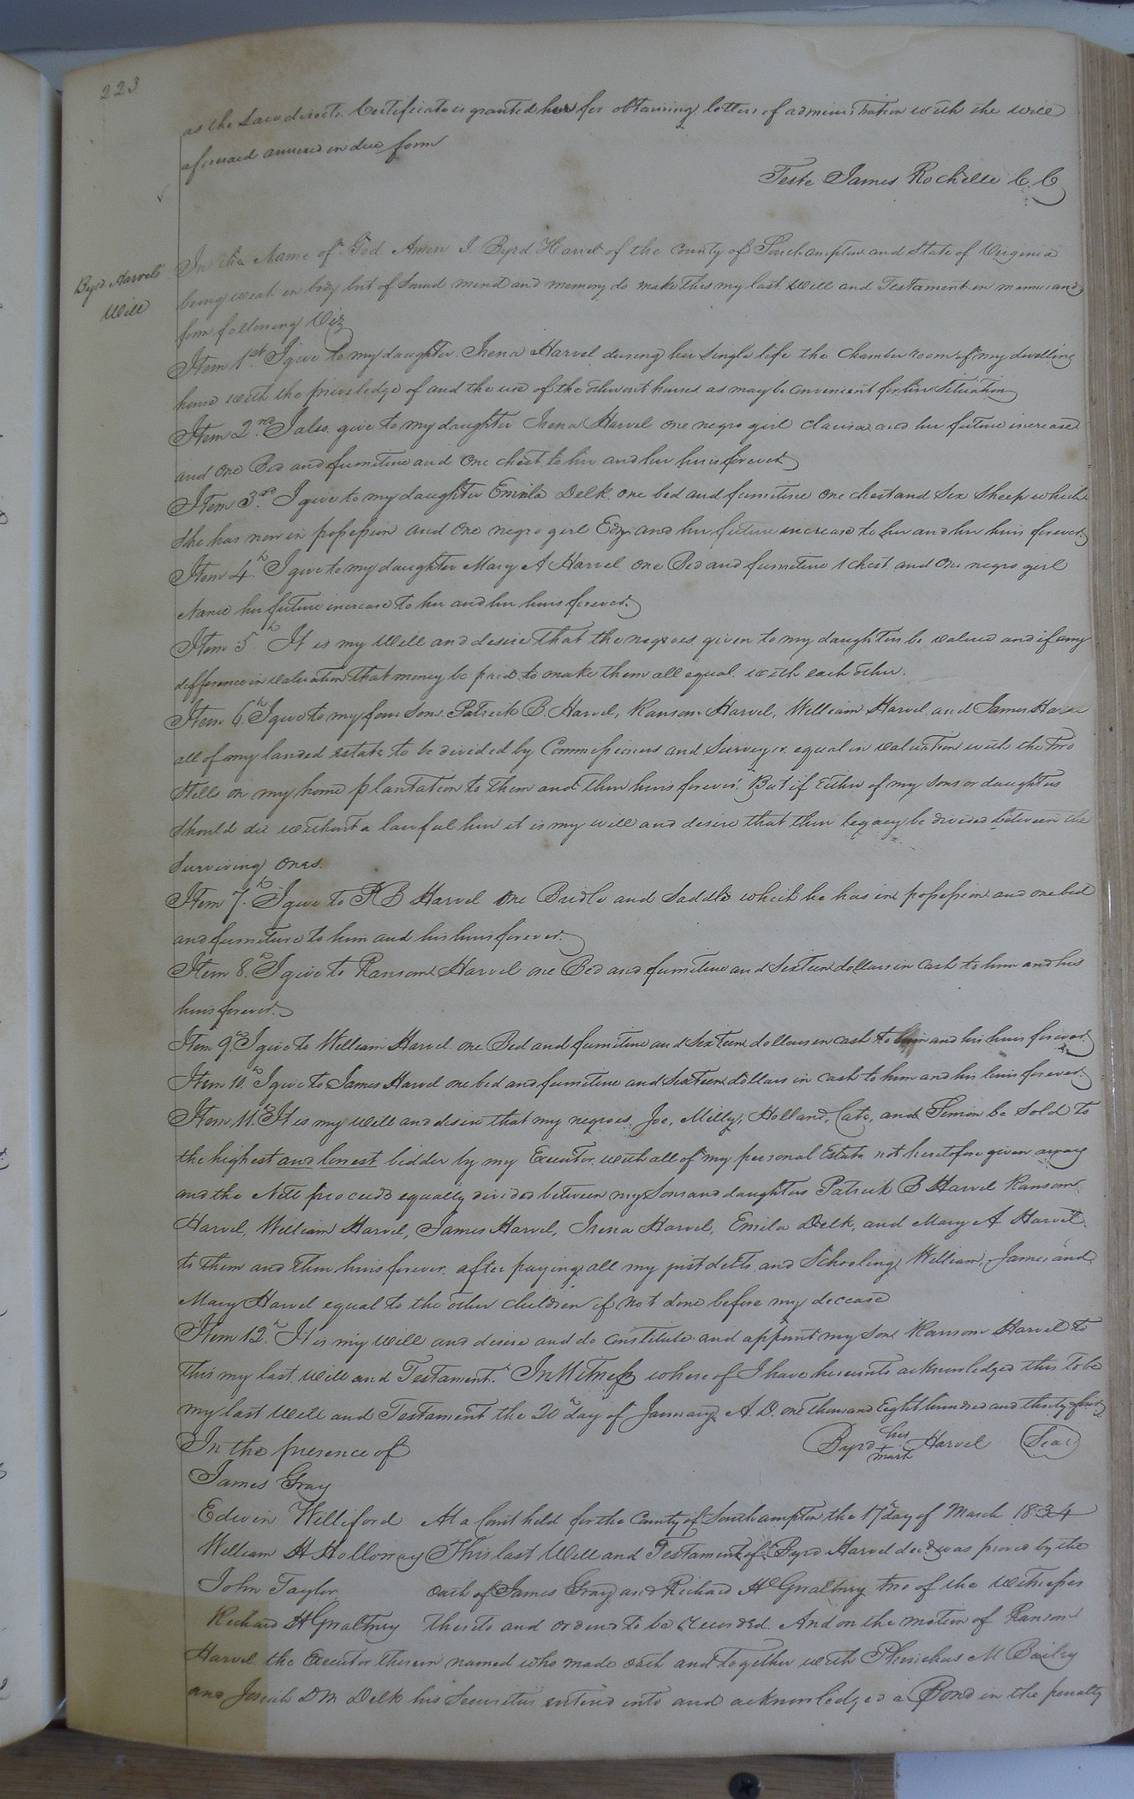 223
as the Law directs Certificate is granted her for obtaining letters of administration with the will
aforesaid annexed in due form
Teste James Rochelle C. C
Byrd Harvel's
Will
In the Name of God Amen I Byrd Harvel of the County of Southampton and State of Virginia
being weak in body but of Sound mind and memory do make this my last Will and Testament in manner and
form following Viz
Item 1st I give to my daughter Irena Harvel during her Single life the Chamber room of my dwelling
house with the priviledge of and the use of the other out houses as may be convenient for her Situation
Item 2nd I also give to my daughter Irena Harvel one negro girl and her future increase
and One Bed and furniture and One chest to her and her heirs forever
Item 3rd I give to my daughter Emila Delk one bed and furniture one chest and Six Sheep which
She has now in possession and One negro girl Edy and her future increase to her and her heirs forever
Item 4th I give to my daughter Mary A Harvel One Bed and furniture 1 chest and One negro girl
her future increase to her and her heirs forever.
Item 5th It is my Will and desire that the negroes given to my daughters be valued and if any
difference in valuation that money be paid to make them all equal with each other.
Item 6th I give to my four Sons Patrick B. Harvel, Ransom Harvel, William Harvel and James Harvel
all of my landed estate to be divided by Commissioners and Surveyor equal in valuation with the two
Stills on my home plantation to them and their heirs forever. But if Either of my Sons or daughters
Should die without a lawful heir it is my will and desire that their legacy be divided between the
Surviving Ones.
Item 7th I give to P B Harvel One Bridle and Saddle which he has in possession and one bed
and furniture to him and his heirs forever.
Item 8th I give to Ransom Harvel one Bed and furniture and Sixteen dollars in Cash to him and his
heirs forever.
Item 9th I give to William Harvel one Bed and furniture and Sixteen dollars in cash to him and his heirs forever
Item 10th I give to James Harvel one bed and furniture and Sixteen dollars in cash to him and his heirs forever.
Item 11th It is my Will and desire that my negroes, Joe, Milly, Holland, Cate, and Simon be Sold to
the highest and bidder by my Executor with all of my personal Estate not heretofore given away
and the Nett proceeds equally divided between my Sons and daughters Patrick B Harvel Ransom
Harvel, William Harvel, James Harvel, Irena Harvel, Emila Delk, and Mary A Harvel
to them and their heirs forever, after paying all my just debts, and Schooling William, James and
Mary Harvel equal to the other children if not done before my decease
Item 12th It is my Will and desire and do constitute and appoint my Son Ransom Harvel to
this my last Will and Testament. In Witness whereof I have hereunto acknowledged this to be
my last Will and Testament the 20th day of January A. D. one thousand Eight hundred and thirty four
In the presence of Byrd his + mark Harvel (Seal)
James Gray
Edwin Williford At a Court held for the County of Southampton the 17th day of March 1834
William H Holloway This last Will and Testament of Byrd Harvel decd was proved by the
John Taylor oath of James Gray and Richard H Gwaltney two of the witnesses
Richard H Gwaltney thereto and ordered to be recorded. And on the motion of Ransom
Harvel the Executor therein named who made oath and together with Phinehas M Bailey
and Josiah D M Delk his Securities entered into and acknowledged a Bond in the penalty